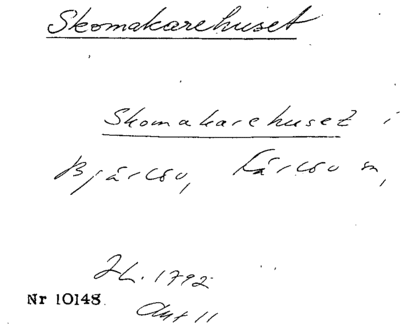 Skomakarehuset
Skomakarehuset i
Bjärsö, Kårsö sn,
Jb. 1792
Nr 10148
Akt 11